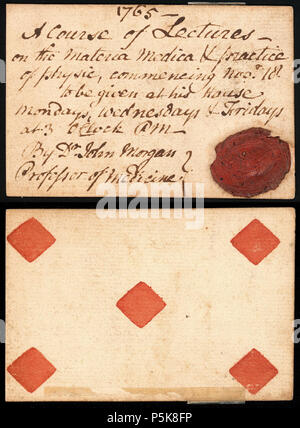 1765 —
A Course of Lectures —
on the Materia Medica & practice
of physic, commencing Nov.r 18th
to be given at his house
Mondays, Wednesdays & Fridays
at 3 o'Clock P.M —
By Dr John Morgan
Professor of Medicine
alamy
Image ID: P5K8FP
www.alamy.com